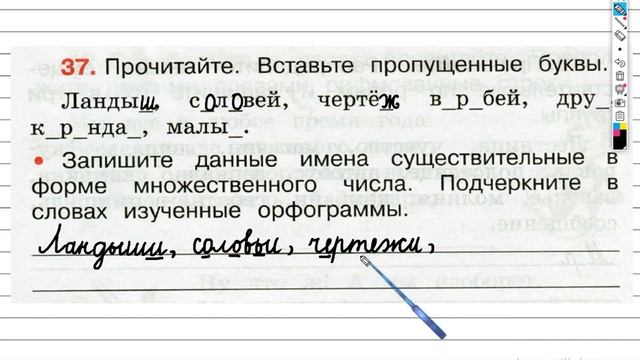 37. Прочитайте. Вставьте пропущенные буквы.
Ландыш, соловей, чертёж в_р_бей, дру_
к_р_нда_, малы_.
• Запишите данные имена существительные в
форме множественного числа. Подчеркните в
словах изученные орфограммы.
Ландыши, соловьи, чертежи,